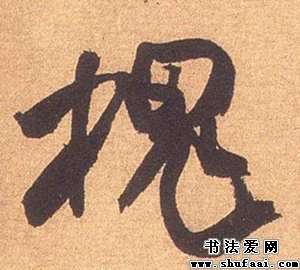 槐
书法爱网
www.shufaai.com